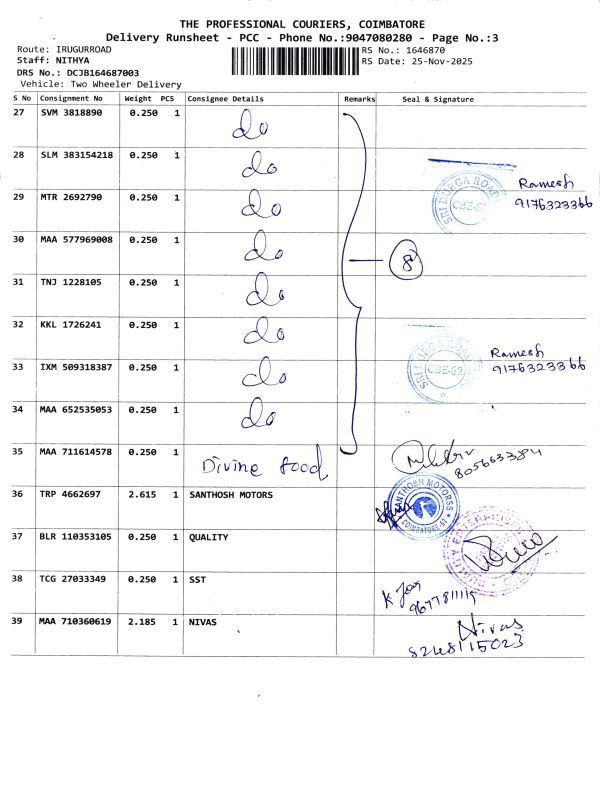 THE PROFESSIONAL COURIERS, COIMBATORE
Delivery Runsheet - PCC - Phone No.:9047080280 - Page No.:3
Route: IRUGURROAD RS No.: 1646870
Staff: NITHYA RS Date: 25-Nov-2025
DRS No.: DCJB164687003
Vehicle: Two Wheeler Delivery
S No Consignment No Weight PCS Consignee Details Remarks Seal & Signature
27 SVM 3818890 0.250 1 do
28 SLM 383154218 0.250 1 do
Ramesh
29 MTR 2692790 0.250 1 do SRI DURGA ROAD CBE-62 9176323366
30 MAA 577969008 0.250 1 do 8
31 TNJ 1228105 0.250 1 do
32 KKL 1726241 0.250 1 do
Ramesh
33 IXM 509318387 0.250 1 do SRI DURGA ROAD CBE-62 9176323366
34 MAA 652535053 0.250 1 do
35 MAA 711614578 0.250 1 Divine food
36 TRP 4662697 2.615 1 SANTHOSH MOTORS SANTHOSH MOTORSS COIMBATORE
37 BLR 110353105 0.250 1 QUALITY
38 TCG 27033349 0.250 1 SST
39 MAA 710360619 2.185 1 NIVAS Nivas
8248115023